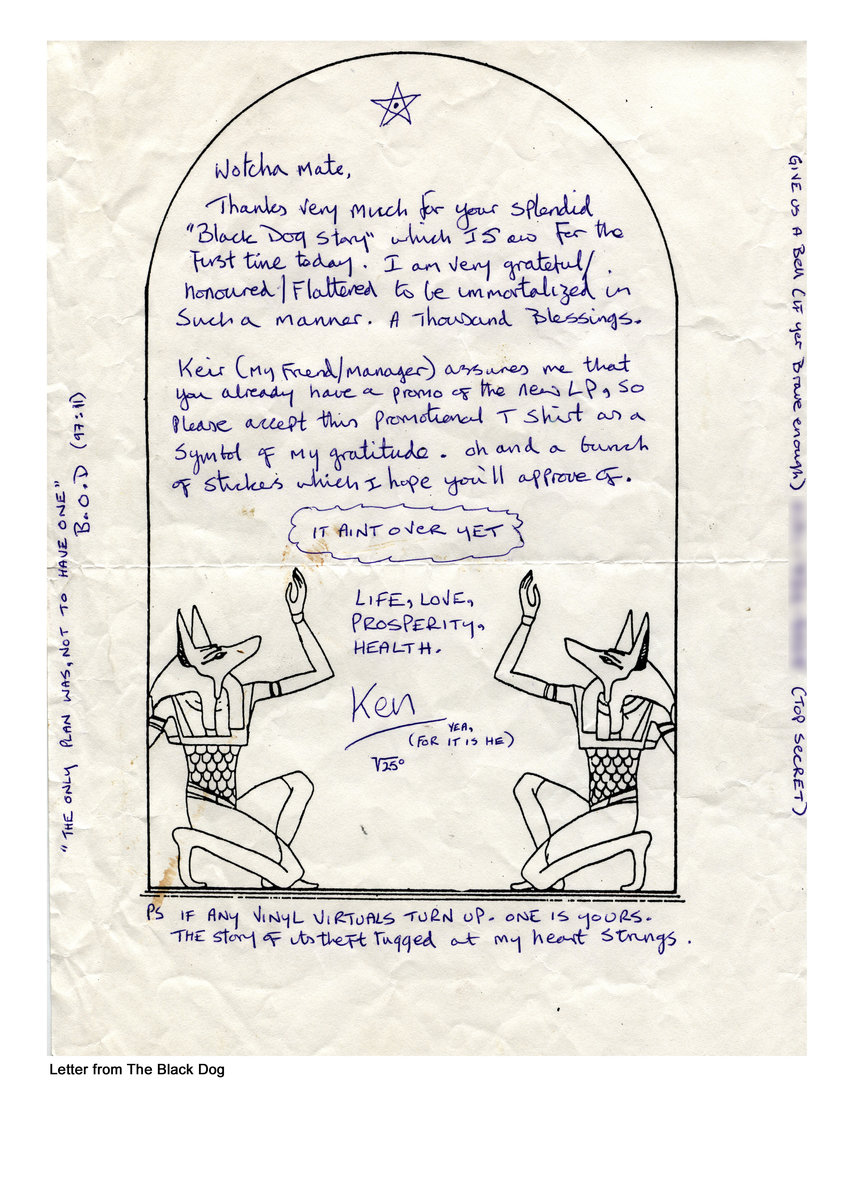 Wotcha Mate,
Thanks very much for your splendid
"Black Dog Story" which I saw for the
first time today. I am very grateful/
honoured/flattered to be immortalized in
such a manner. A Thousand Blessings.
Keir (My Friend/Manager) assures me that
you already have a promo of the new LP, so
Please accept this promotional T Shirt as a
symbol of my gratitude. oh and a bunch
of stickers which I hope you'll approve of.
IT AINT OVER YET
LIFE, LOVE,
PROSPERITY,
HEALTH.
Ken
YEA,
(FOR IT IS HE)
√25°
PS IF ANY VINYL VIRTUALS TURN UP. ONE IS YOURS.
THE story of its theft tugged at my heart strings.
"THE ONLY PLAN WAS, NOT TO HAVE ONE"
B.O.D (97:11)
GIVE US A Bell (IF yer Brave enough)
(TOP SECRET)
Letter from The Black Dog